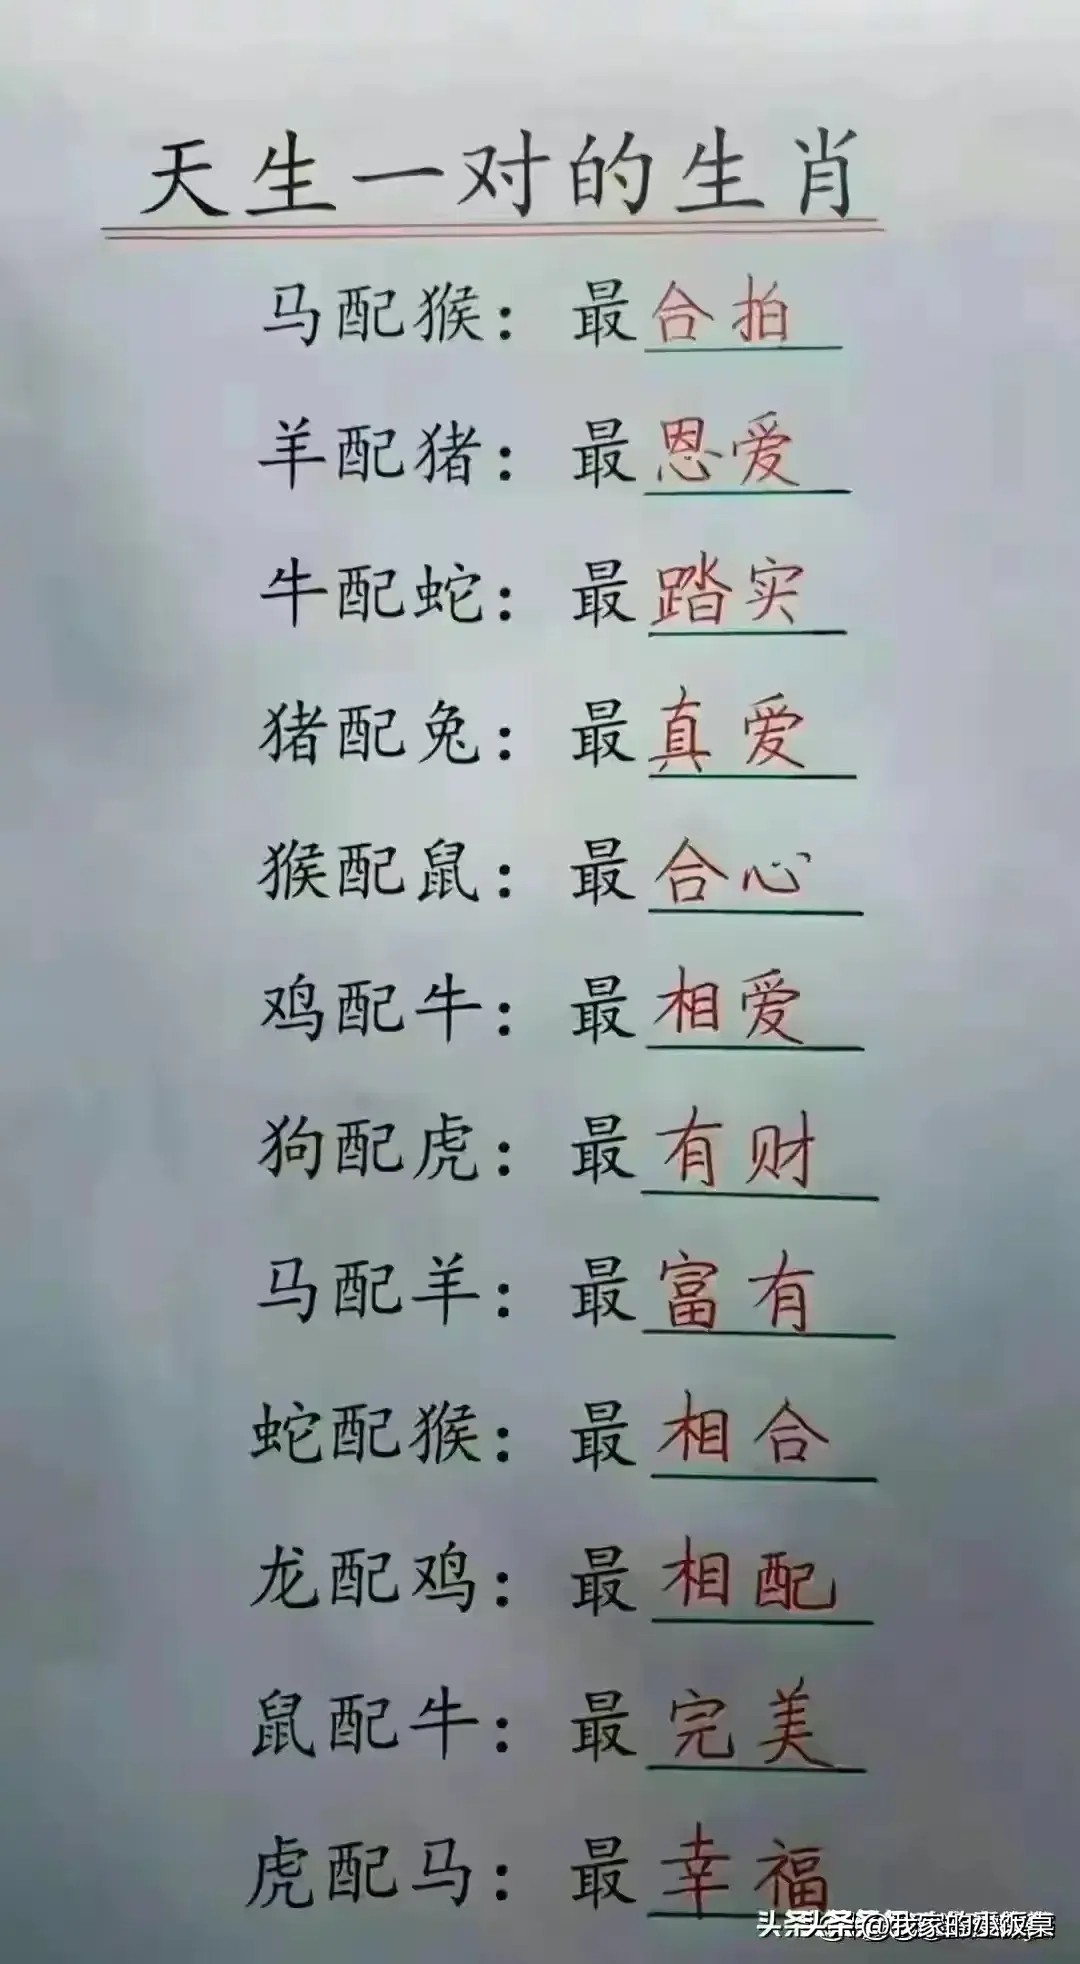 天生一对的生肖
马配猴：最合拍
羊配猪：最恩爱
牛配蛇：最踏实
猪配兔：最真爱
猴配鼠：最合心
鸡配牛：最相爱
狗配虎：最有财
马配羊：最富有
蛇配猴：最相合
龙配鸡：最相配
鼠配牛：最完美
虎配马：最幸福
头条 @我家的小饭桌